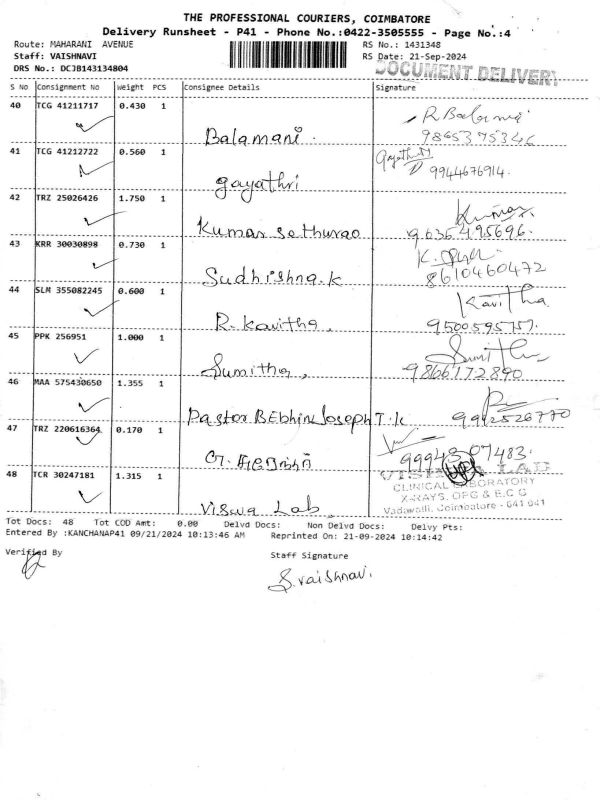 THE PROFESSIONAL COURIERS, COIMBATORE
Delivery Runsheet - P41 - Phone No.:0422-3505555 - Page No.:4
Route: MAHARANI AVENUE RS No.: 1431348
Staff: VAISHNAVI RS Date: 21-Sep-2024
DRS No.: DCJB143134804 DOCUMENT DELIVERY
S No Consignment No Weight PCS Consignee Details Signature
40 TCG 41211717 0.430 1 R Balamani
Balamani. 9865375346
41 TCG 41212722 0.560 1 Gayathri
gayathri 9944676914.
42 TRZ 25026426 1.750 1 Kumar
Kumar Sethurao 9635495696.
43 KRR 30030898 0.730 1 K.
Sudhishna.k 8610460472
44 SLM 355082245 0.600 1 Kavitha
R. Kavitha. 9500595757.
45 PPK 256951 1.000 1 Sumitha
Sumitha, 9866172890
46 MAA 575430650 1.355 1
Pastor BEbhin Joseph T.k 9942526770
47 TRZ 220616364 0.170 1
99943 07483.
48 TCR 30247181 1.315 1 VISWA LAB
CLINICAL LABORATORY
X-RAYS, OPG & E.C.G
Viswa Lab. Vadavalli, Coimbatore - 641 041
Tot Docs: 48 Tot COD Amt: 0.00 Delvd Docs: Non Delvd Docs: Delvy Pts:
Entered By :KANCHANAP41 09/21/2024 10:13:46 AM Reprinted On: 21-09-2024 10:14:42
Verified By Staff Signature
S.vaishnavi.